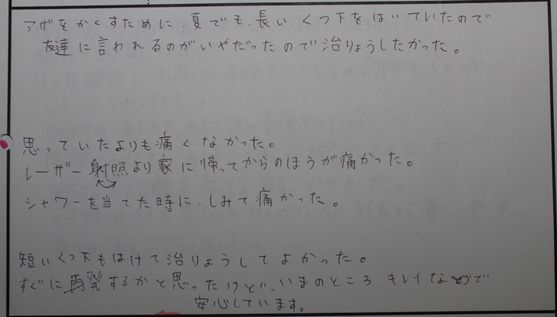 アザをかくすために、夏でも、長い、くつ下をはいていたので
友達に言われるのがいやだったので治りょうしたかった。
思っていたよりも痛くなかった。
レーザー射照より家に帰ってからのほうが痛かった。
シャワーを当てた時に、しみて痛かった。
短いくつ下もはけて治りょうしてよかった。
すぐに再発するかと思ったけど、いまのところ、キレイなので
安心しています。